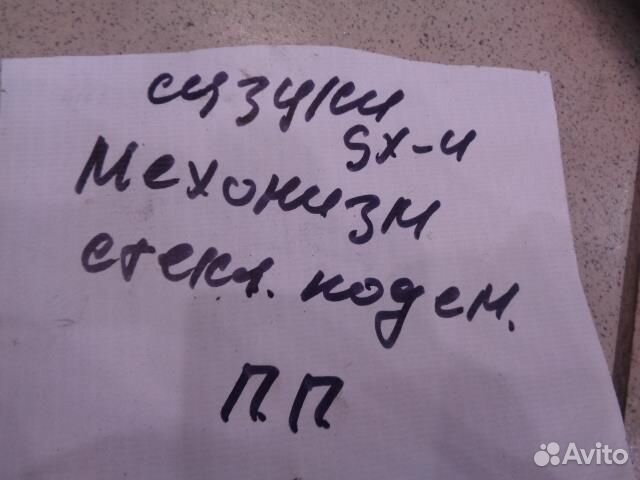 сузуки
SX-4
Механизм
стекл. подем.
П.П.
Avito